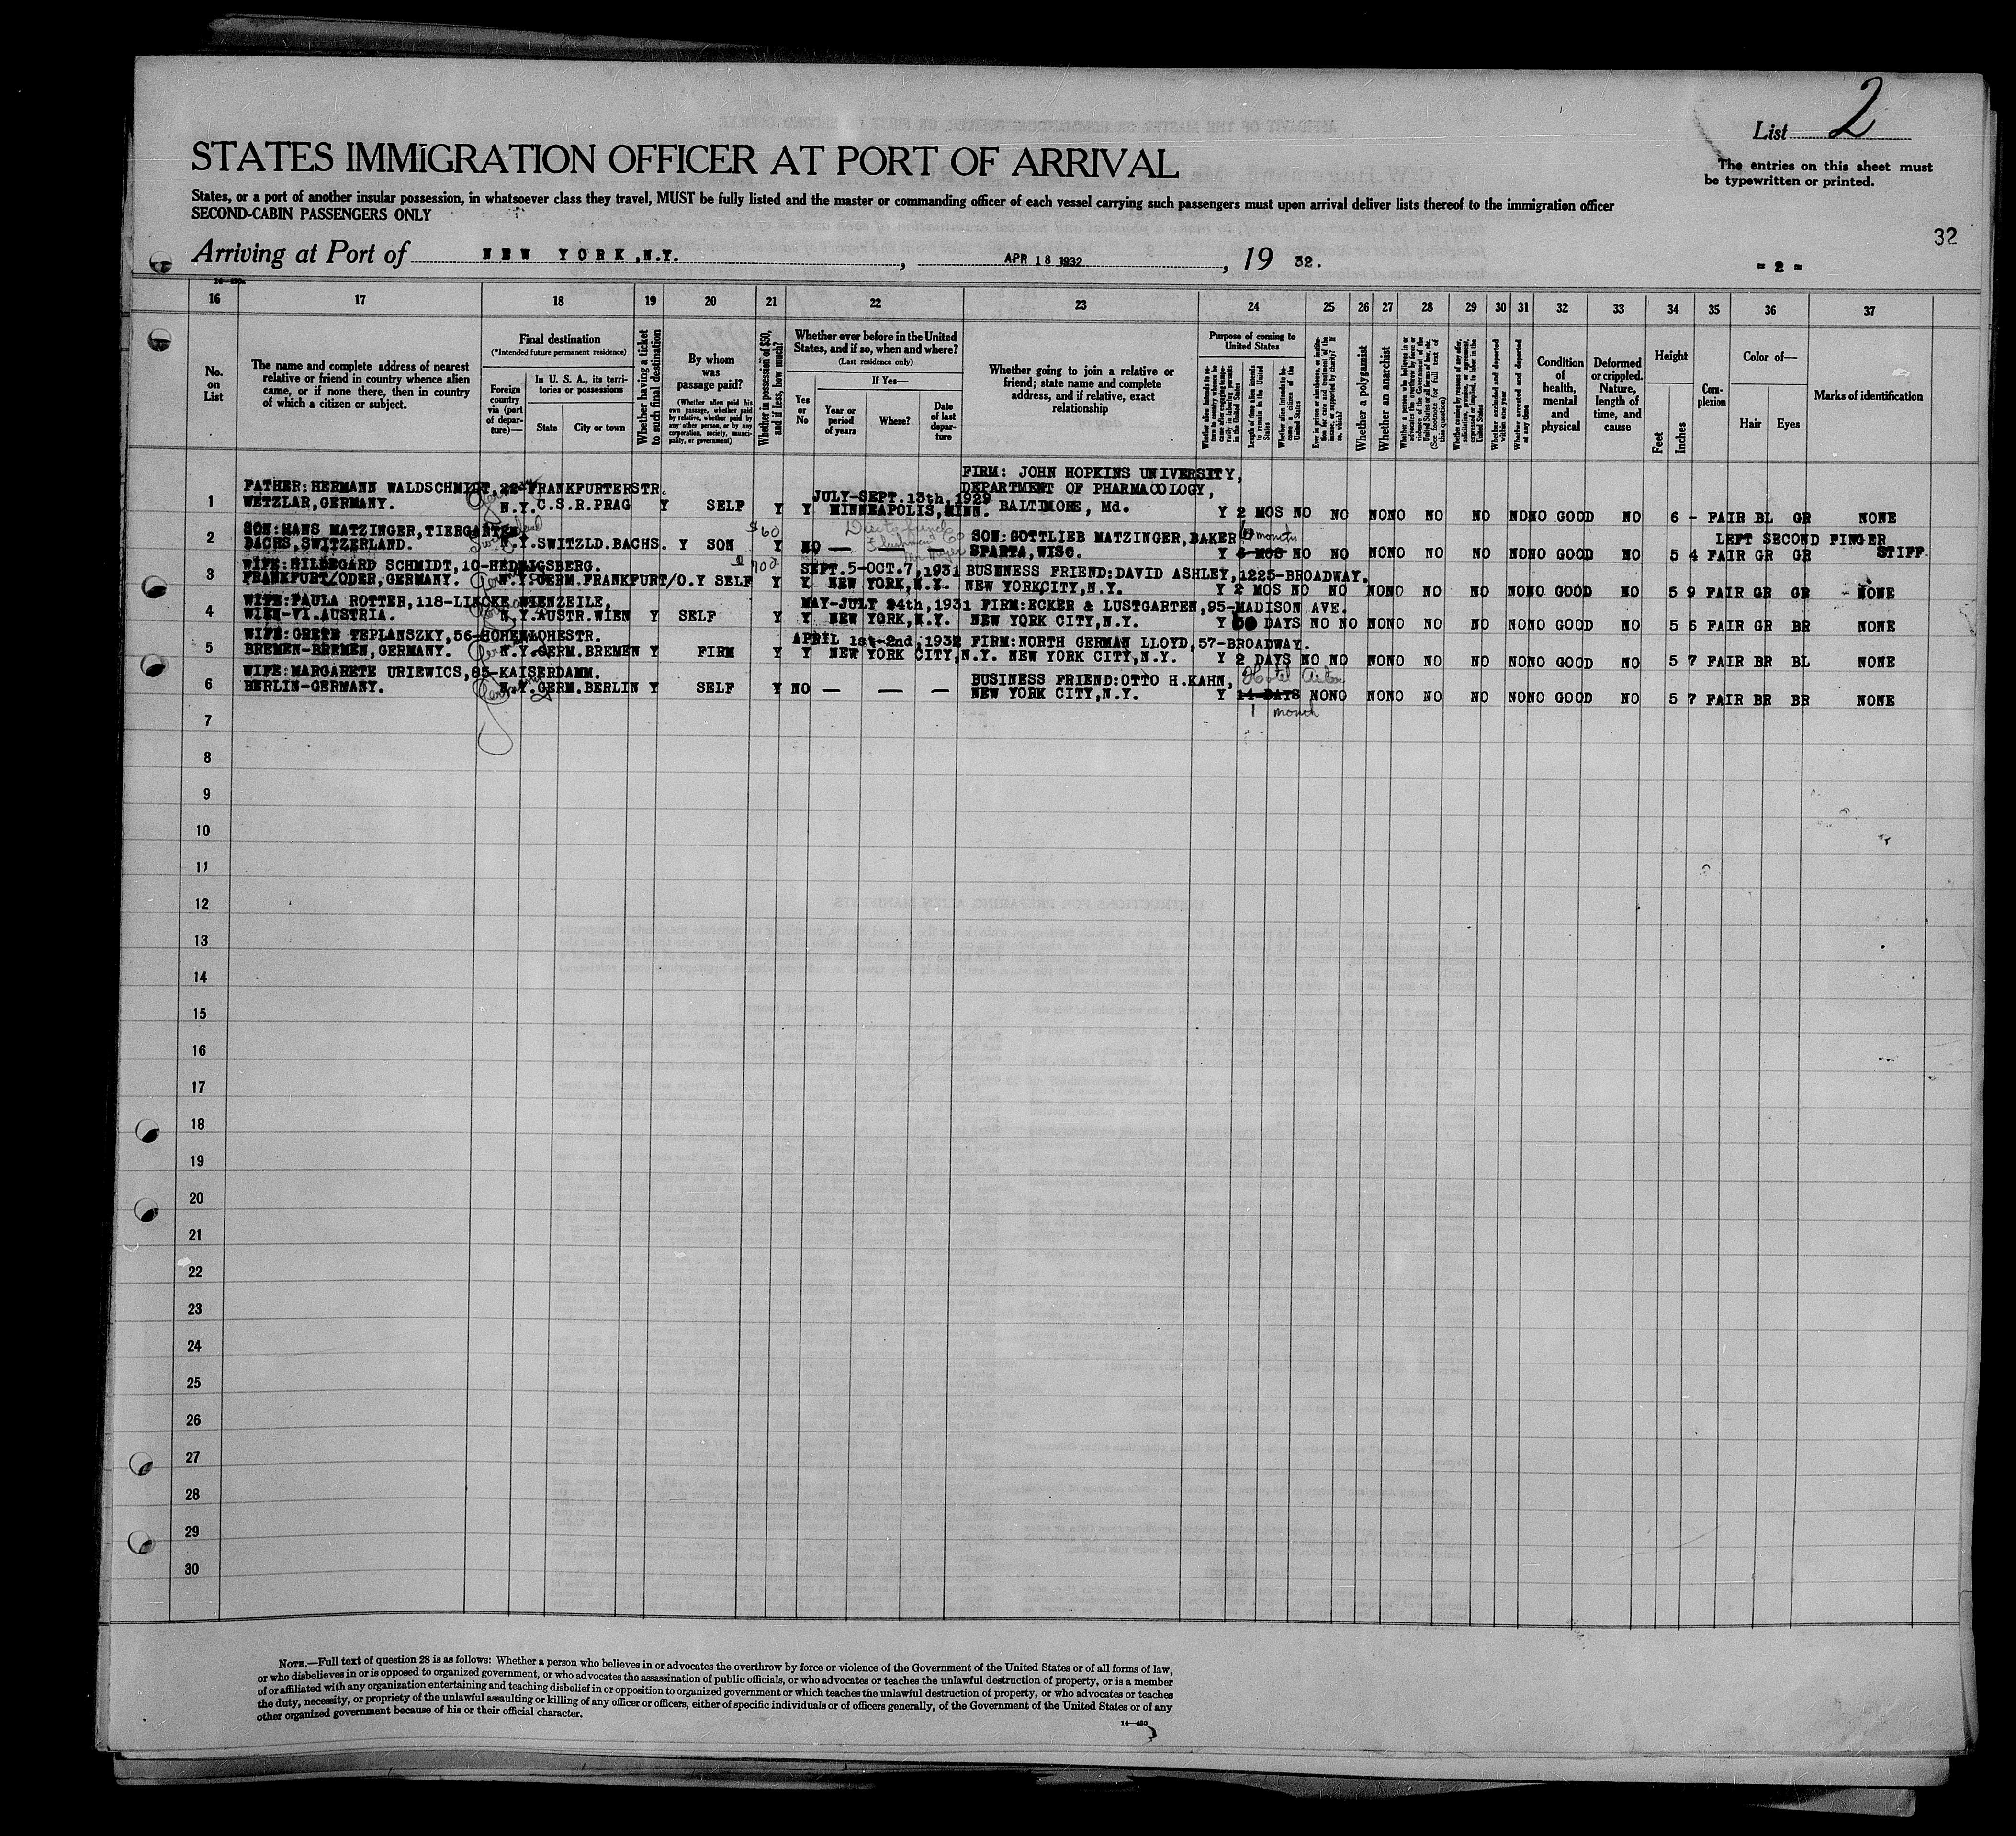 List 2
STATES IMMIGRATION OFFICER AT PORT OF ARRIVAL
The entries on this sheet must
be typewritten or printed.
States, or a port of another insular possession, in whatsoever class they travel, MUST be fully listed and the master or commanding officer of each vessel carrying such passengers must upon arrival deliver lists thereof to the immigration officer
SECOND-CABIN PASSENGERS ONLY
32
Arriving at Port of NEW YORK, N.Y. , APR 18 1932 , 19 32.
- 2 -
16 17 18 19 20 21 22 23 24 25 26 27 28 29 30 31 32 33 34 35 36 37
No. on List
The name and complete address of nearest
relative or friend in country whence alien
came, or if none there, then in country
of which a citizen or subject.
Final destination
(*Intended future permanent residence)
Foreign country via (port of departure)—
In U. S. A., its territories or possessions
State
City or town
Whether having a ticket to such final destination
By whom was passage paid?
(Whether alien paid his own passage, whether paid by relative, whether paid by any other person, or by any corporation, society, municipality, or government)
Whether in possession of $50, and if less, how much?
Whether ever before in the United States, and if so, when and where?
(Last residence only)
Yes or No
If Yes—
Year or period of years
Where?
Date of last departure
Whether going to join a relative or
friend; state name and complete
address, and if relative, exact
relationship
Purpose of coming to United States
Length of time alien intends to remain in the United States
Whether alien intends to become a citizen of the United States
Whether a polygamist
Whether an anarchist
(See footnote for full text of this question)
Whether excluded and deported within one year
Whether arrested and deported at any time
Condition of health, mental and physical
Deformed or crippled. Nature, length of time, and cause
Height
Feet
Inches
Complexion
Color of—
Hair
Eyes
Marks of identification
FIRM: JOHN HOPKINS UNIVERSITY,
FATHER: HERMANN WALDSCHMIDT, 22-FRANKFURTERSTR. JULY-SEPT. 13th, 1929 DEPARTMENT OF PHARMACOLOGY,
1 WETZLAR, GERMANY. N.Y. C.S.R. PRAG Y SELF Y Y MINNEAPOLIS, MINN. BALTIMORE, Md. Y 2 MOS NO NO NO NO NO NO NO NO GOOD NO 6 - FAIR BL GR NONE
SON: HANS MATZINGER, TIERGARTEN $60 SON: GOTTLIEB MATZINGER, BAKER months LEFT SECOND FINGER
2 BACHS, SWITZERLAND. N.Y. SWITZLD. BACHS. Y SON Y NO — — — SPARTA, WISC. Y 6 MOS NO NO NO NO NO NO NO NO GOOD NO 5 4 FAIR GR GR STIFF
WIFE: HILDEGARD SCHMIDT, 10-HEDWIGSBERG. SEPT. 5-OCT. 7, 1931 BUSINESS FRIEND: DAVID ASHLEY, 1225-BROADWAY.
3 FRANKFURT/ODER, GERMANY. N.Y. GERM. FRANKFURT/O. Y SELF Y Y NEW YORK, N.Y. NEW YORKCITY, N.Y. Y 2 MOS NO NO NO NO NO NO NO NO GOOD NO 5 9 FAIR GR GR NONE
WIFE: PAULA ROTTER, 118-LINCKE WIENZEILE, MAY-JULY 24th, 1931 FIRM: ECKER & LUSTGARTEN, 95-MADISON AVE.
4 WIEN-VI. AUSTRIA. N.Y. AUSTR. WIEN Y SELF Y Y NEW YORK, N.Y. NEW YORK CITY, N.Y. Y DAYS NO NO NO NO NO NO NO NO GOOD NO 5 6 FAIR GR BR NONE
WIFE: GRETE TEPLANSZKY, 56-HOHENLOHESTR. APRIL 1st-2nd, 1932 FIRM: NORTH GERMAN LLOYD, 57-BROADWAY.
5 BREMEN-BREMEN, GERMANY. N.Y. GERM. BREMEN Y FIRM Y Y NEW YORK CITY, N.Y. NEW YORK CITY, N.Y. Y 2 DAYS NO NO NO NO NO NO NO NO GOOD NO 5 7 FAIR BR BL NONE
WIFE: MARGARETE URIEWICS, 85-KAISERDAMM. BUSINESS FRIEND: OTTO H. KAHN, Hotel
6 BERLIN-GERMANY. N.Y. GERM. BERLIN Y SELF Y NO — — — NEW YORK CITY, N.Y. Y 14 DAYS NO NO NO NO NO NO NO NO GOOD NO 5 7 FAIR BR BR NONE
1 month
7
8
9
10
11
12
13
14
15
16
17
18
19
20
21
22
23
24
25
26
27
28
29
30
NOTE.—Full text of question 28 is as follows: Whether a person who believes in or advocates the overthrow by force or violence of the Government of the United States or of all forms of law,
or who disbelieves in or is opposed to organized government, or who advocates the assassination of public officials, or who advocates or teaches the unlawful destruction of property, or is a member
of or affiliated with any organization entertaining and teaching disbelief in or opposition to organized government or which teaches the unlawful destruction of property, or who advocates or teaches
the duty, necessity, or propriety of the unlawful assaulting or killing of any officer or officers, either of specific individuals or of officers generally, of the Government of the United States or of any
other organized government because of his or their official character.
14—430